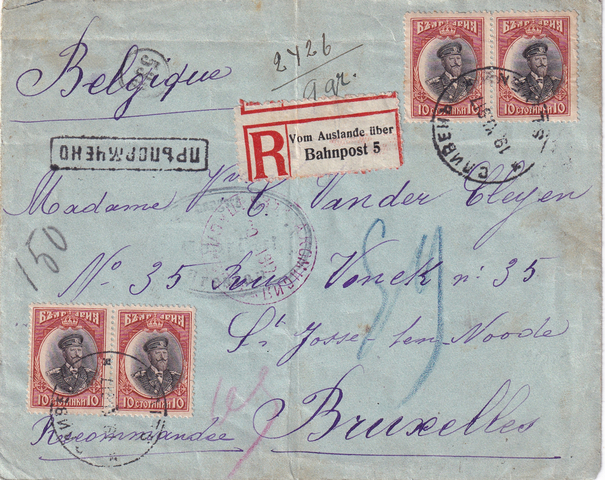 Belgique
2426
9 gr.
БЪЛГАРИЯ
БЪЛГАРИЯ
10 СТОТИНКИ 10
10 СТОТИНКИ 10
СЛИВЕН
ПРѢПОРѪЧЕНО
R
Vom Auslande über
Bahnpost 5
Madame Vve C. Van der Cleyen
150
No 35 Rue Vonck n: 35
St Josse-ten-Noode
БЪЛГАРИЯ
БЪЛГАРИЯ
10 СТОТИНКИ 10
10 СТОТИНКИ 10
Recommandée
Bruxelles